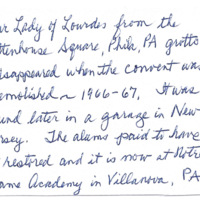 ur Lady of Lourdes from the
ttenhouse Square, Phila, PA grotto
isappeared when the convent was
emolished ~ 1966-67. It was
und later in a garage in New
rsey. The alums paid to have
restored and it is now at Notre
ame Academy in Villanova, PA